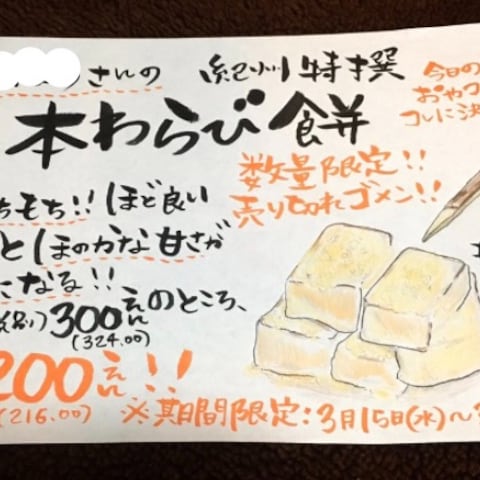 さんの 紀州特撰
今日の
おやつ
コレに決
本わらび餅
数量限定!!
売り切れゴメン!!
ちもち!! ほど良い
とほのかな甘さが
になる!!
(税別)300えんのところ、
(324.00)
200えん!!
(216.00)
※期間限定:3月15日(水)〜